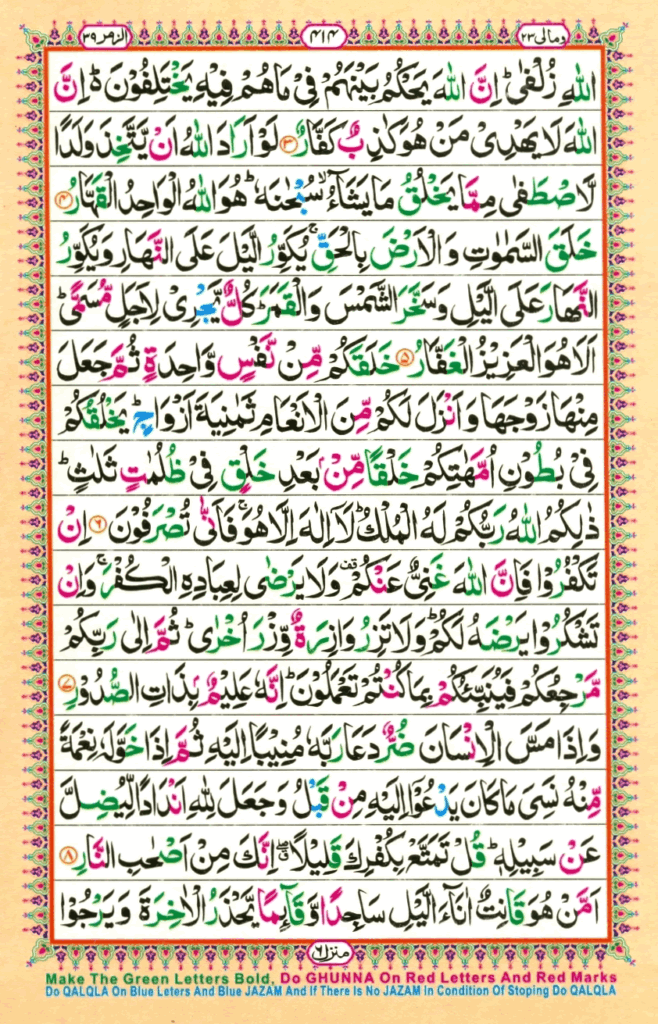 ومالی ۲۳
۴۱۴
الزمر ۳۹
اللهِ زُلْفٰىؕ اِنَّ اللهَ يَحْكُمُ بَيْنَهُمْ فِىْ مَا هُمْ فِيْهِ يَخْتَلِفُوْنَ ؕ اِنَّ
اللهَ لَا يَهْدِىْ مَنْ هُوَ كٰذِبٌ كَفَّارٌ ۳ لَوْ اَرَادَ اللهُ اَنْ يَّتَّخِذَ وَلَدًا
لَّاصْطَفٰى مِمَّا يَخْلُقُ مَا يَشَآءُ ۙ سُبْحٰنَهٗ ؕ هُوَ اللهُ الْوَاحِدُ الْقَهَّارُ ۴
خَلَقَ السَّمٰوٰتِ وَالْاَرْضَ بِالْحَقِّ ۚ يُكَوِّرُ الَّيْلَ عَلَى النَّهَارِ وَيُكَوِّرُ
النَّهَارَ عَلَى الَّيْلِ وَسَخَّرَ الشَّمْسَ وَالْقَمَرَ ؕ كُلٌّ يَّجْرِىْ لِاَجَلٍ مُّسَمًّىؕ
اَلَا هُوَ الْعَزِيْزُ الْغَفَّارُ ۵ خَلَقَكُمْ مِّنْ نَّفْسٍ وَّاحِدَةٍ ثُمَّ جَعَلَ
مِنْهَا زَوْجَهَا وَاَنْزَلَ لَكُمْ مِّنَ الْاَنْعَامِ ثَمٰنِيَةَ اَزْوَاجٍ ؕ يَخْلُقُكُمْ
فِىْ بُطُوْنِ اُمَّهٰتِكُمْ خَلْقًا مِّنْۢ بَعْدِ خَلْقٍ فِىْ ظُلُمٰتٍ ثَلٰثٍ ؕ
ذٰلِكُمُ اللهُ رَبُّكُمْ لَهُ الْمُلْكُ ؕ لَاۤ اِلٰهَ اِلَّا هُوَ ۚ فَاَنّٰى تُصْرَفُوْنَ ۶ اِنْ
تَكْفُرُوْا فَاِنَّ اللهَ غَنِىٌّ عَنْكُمْ ۟ وَلَا يَرْضٰى لِعِبَادِهِ الْكُفْرَ ۚ وَاِنْ
تَشْكُرُوْا يَرْضَهُ لَكُمْ ؕ وَلَا تَزِرُ وَازِرَةٌ وِّزْرَ اُخْرٰى ؕ ثُمَّ اِلٰى رَبِّكُمْ
مَّرْجِعُكُمْ فَيُنَبِّئُكُمْ بِمَا كُنْتُمْ تَعْمَلُوْنَ ؕ اِنَّهٗ عَلِيْمٌۢ بِذَاتِ الصُّدُوْرِ ۷
وَاِذَا مَسَّ الْاِنْسَانَ ضُرٌّ دَعَا رَبَّهٗ مُنِيْبًا اِلَيْهِ ثُمَّ اِذَا خَوَّلَهٗ نِعْمَةً
مِّنْهُ نَسِىَ مَا كَانَ يَدْعُوْۤا اِلَيْهِ مِنْ قَبْلُ وَجَعَلَ لِلهِ اَنْدَادًا لِّيُضِلَّ
عَنْ سَبِيْلِهٖ ؕ قُلْ تَمَتَّعْ بِكُفْرِكَ قَلِيْلًا ۖ اِنَّكَ مِنْ اَصْحٰبِ النَّارِ ۸
اَمَّنْ هُوَ قَانِتٌ اٰنَآءَ الَّيْلِ سَاجِدًا وَّقَآئِمًا يَّحْذَرُ الْاٰخِرَةَ وَيَرْجُوْا
منزل ۶
Make The Green Letters Bold, Do GHUNNA On Red Letters And Red Marks
Do QALQLA On Blue Leters And Blue JAZAM And If There Is No JAZAM In Condition Of Stoping Do QALQLA